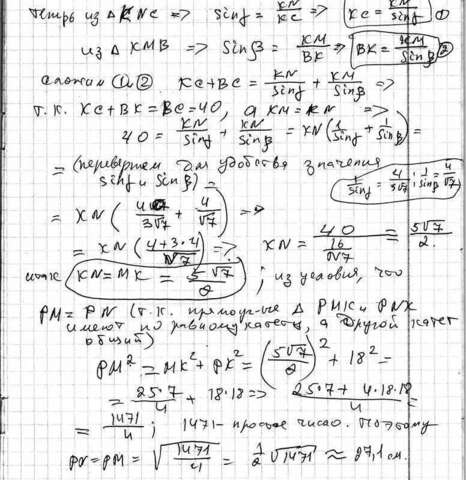 теперь из Δ KNC => sinγ = KN/KC => KC = KN/sinγ ①
из Δ KMB => sinβ = KM/BK => BK = KM/sinβ ②
сложим ① и ② KC+BC = KN/sinγ + KM/sinβ =>
т.к. KC+BK=BC=40, а KM=KN =>
40 = KN/sinγ + KN/sinβ = KN(1/sinγ + 1/sinβ) =
= (перевернем для удобства значения
sinγ и sinβ) = 1/sinγ = 4/3√7; 1/sinβ = 4/√7
= KN(4/3√7 + 4/√7) =>
= KN(4+3·4/√7) => KN = 40/(16/3√7) = 5√7/2.
итак KN=MK = 5√7/2; из условия, что
PM=PN (т.к. прямоуг-ые Δ PMK и PNK
имеют по равному катету, а другой катет
общий)
PM² = MK²+PK² = (5√7/2)² + 18² =
= 25·7/4 + 18·18 => 25·7+4·18·18/4 =
= 1471/4; 1471- простое число. Поэтому
PN=PM = √1471/4 = 1/2 √1471 ≈ 27,1 см.